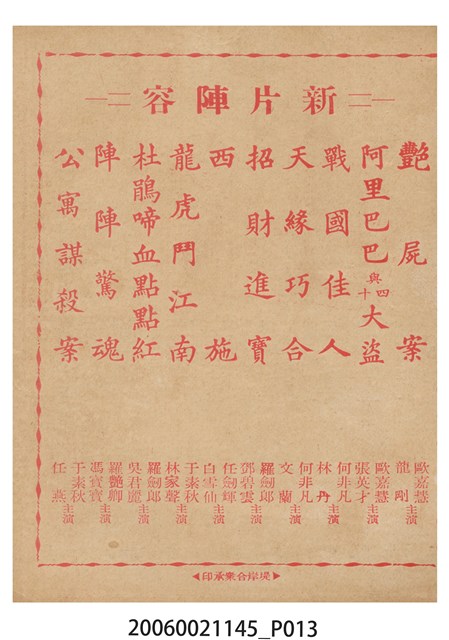 新片陣容
艷屍案
阿里巴巴與四十大盜
戰國佳人
天緣巧合
招財進寶
西施
龍虎鬥江南
杜鵑啼血點點紅
陣陣驚魂
公寓謀殺案
歐嘉慧
龍剛
主演
歐嘉慧
張英才
主演
何非凡
林丹
主演
何非凡
文蘭
主演
羅劍郎
鄧碧雲
主演
任劍輝
白雪仙
主演
于素秋
林家聲
主演
羅劍郎
吳君麗
主演
羅艷卿
馮寶寶
主演
于素秋
任燕
主演
堤岸合衆承印
20060021145_P013